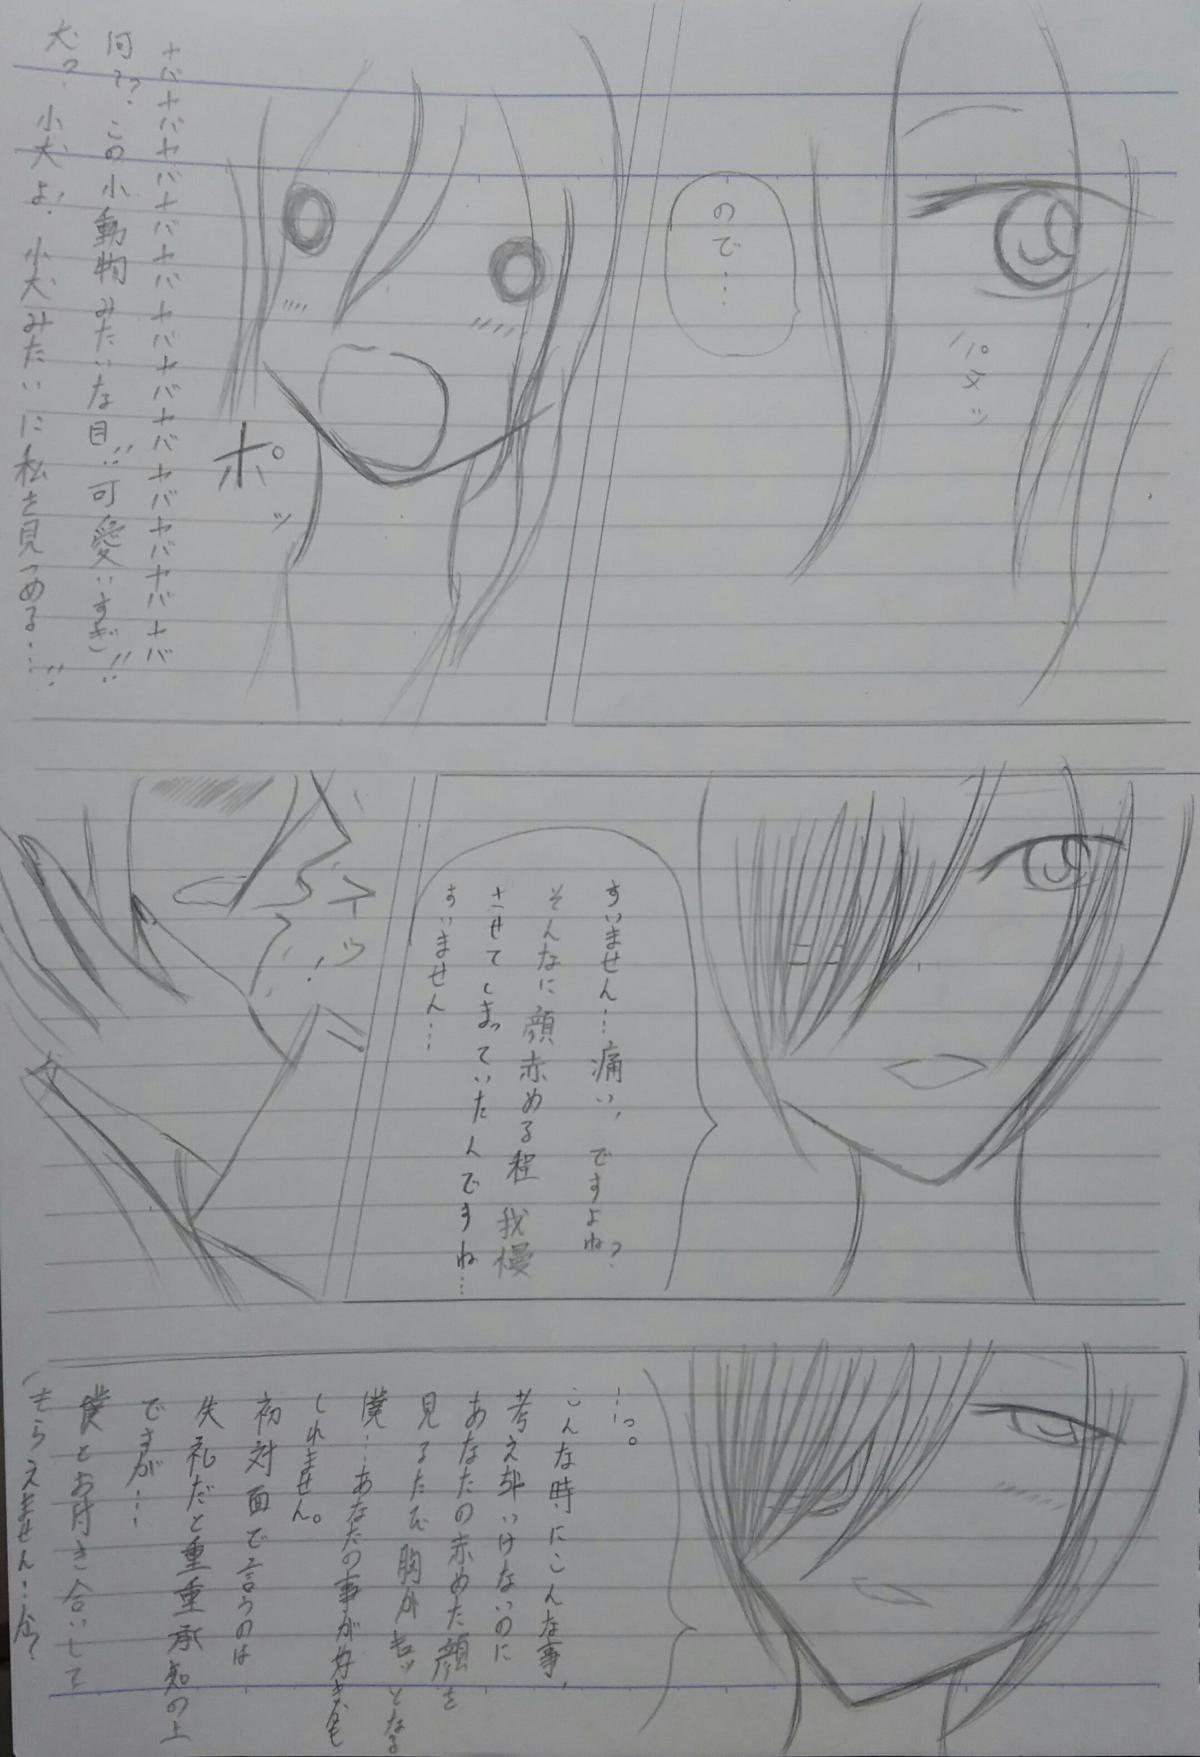 ので…
パチッ
ポッ
ヤバヤバヤバヤバヤバヤバヤバヤバヤバヤバヤバ
何??この小動物みたいな目!!可愛いすぎ!!
犬?小犬よ!小犬みたいに私を見つめる…!!
すいません…痛い、ですよね?
そんなに顔赤める程我慢
させてしまっていたんですね…
すいません…
…っ。
こんな時にこんな事、
考えちゃいけないのに
あなたの赤めた顔を
見るたび胸がキュッとなる
僕…あなたの事が好きかも
しれません。
初対面で言うのは
失礼だと重重承知の上
ですが…
僕とお付き合いして
もらえません…か?